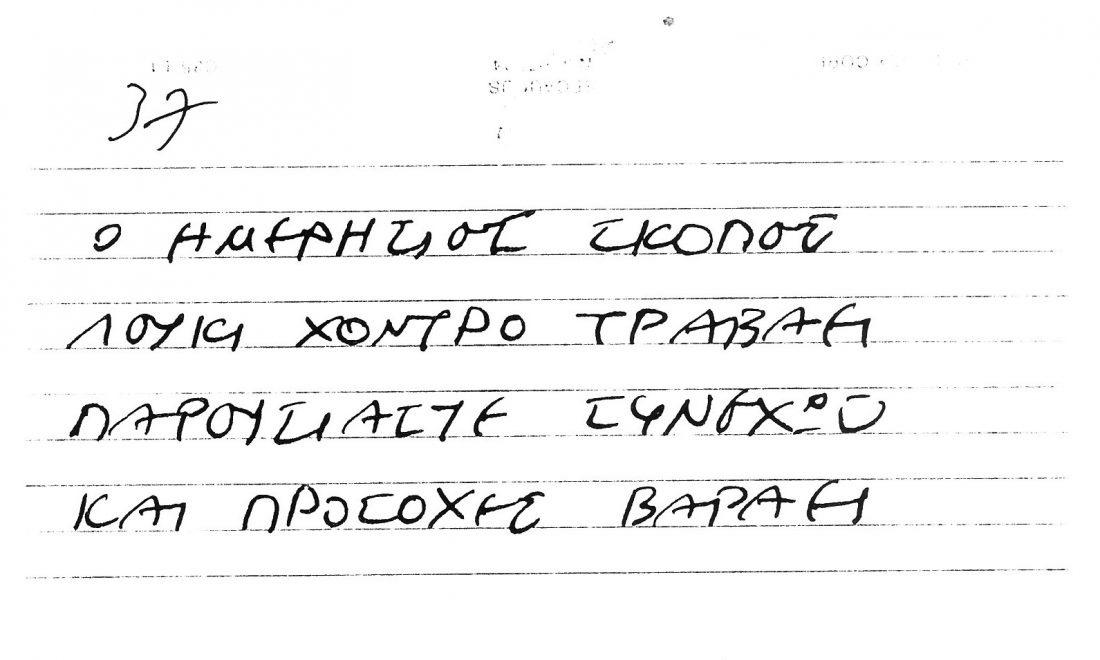 37
Ο ΗΜΕΡΗΣΙΟΣ ΣΚΟΠΟΣ
ΛΟΥΚΙ ΧΟΝΤΡΟ ΤΡΑΒΑΕΙ
ΠΑΡΟΥΣΙΑΣΤΕ ΣΥΝΕΧΩΣ
ΚΑΙ ΠΡΟΣΟΧΗΣ ΒΑΡΑΕΙ